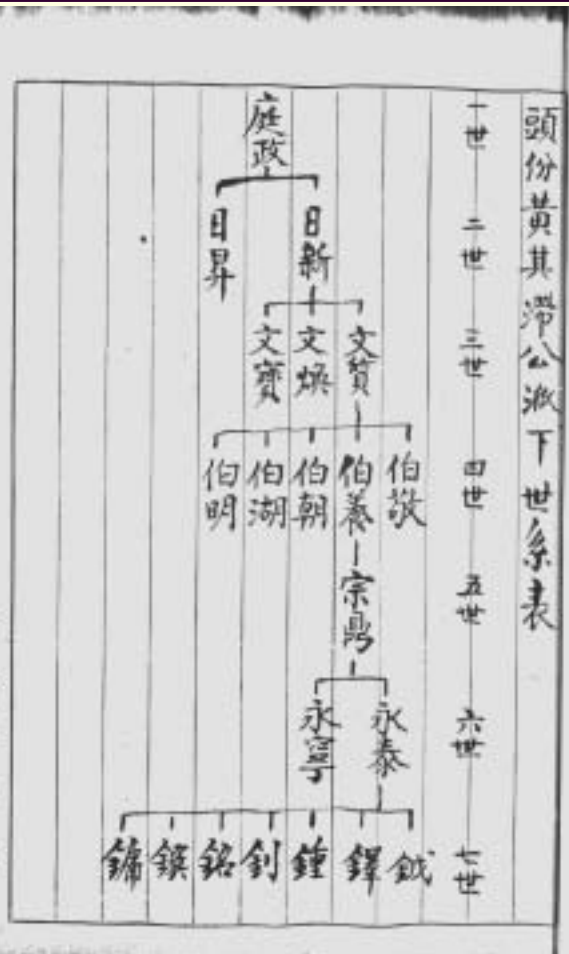 頭份黃其滯公派下世系表
一世
二世
三世
四世
五世
六世
七世
庭政
日新
日昇
文質
文煥
文寶
伯敬
伯養
伯朝
伯湖
伯明
宗鼎
永泰
永寧
鉞
鐸
鍾
釗
銘
鏌
鏞